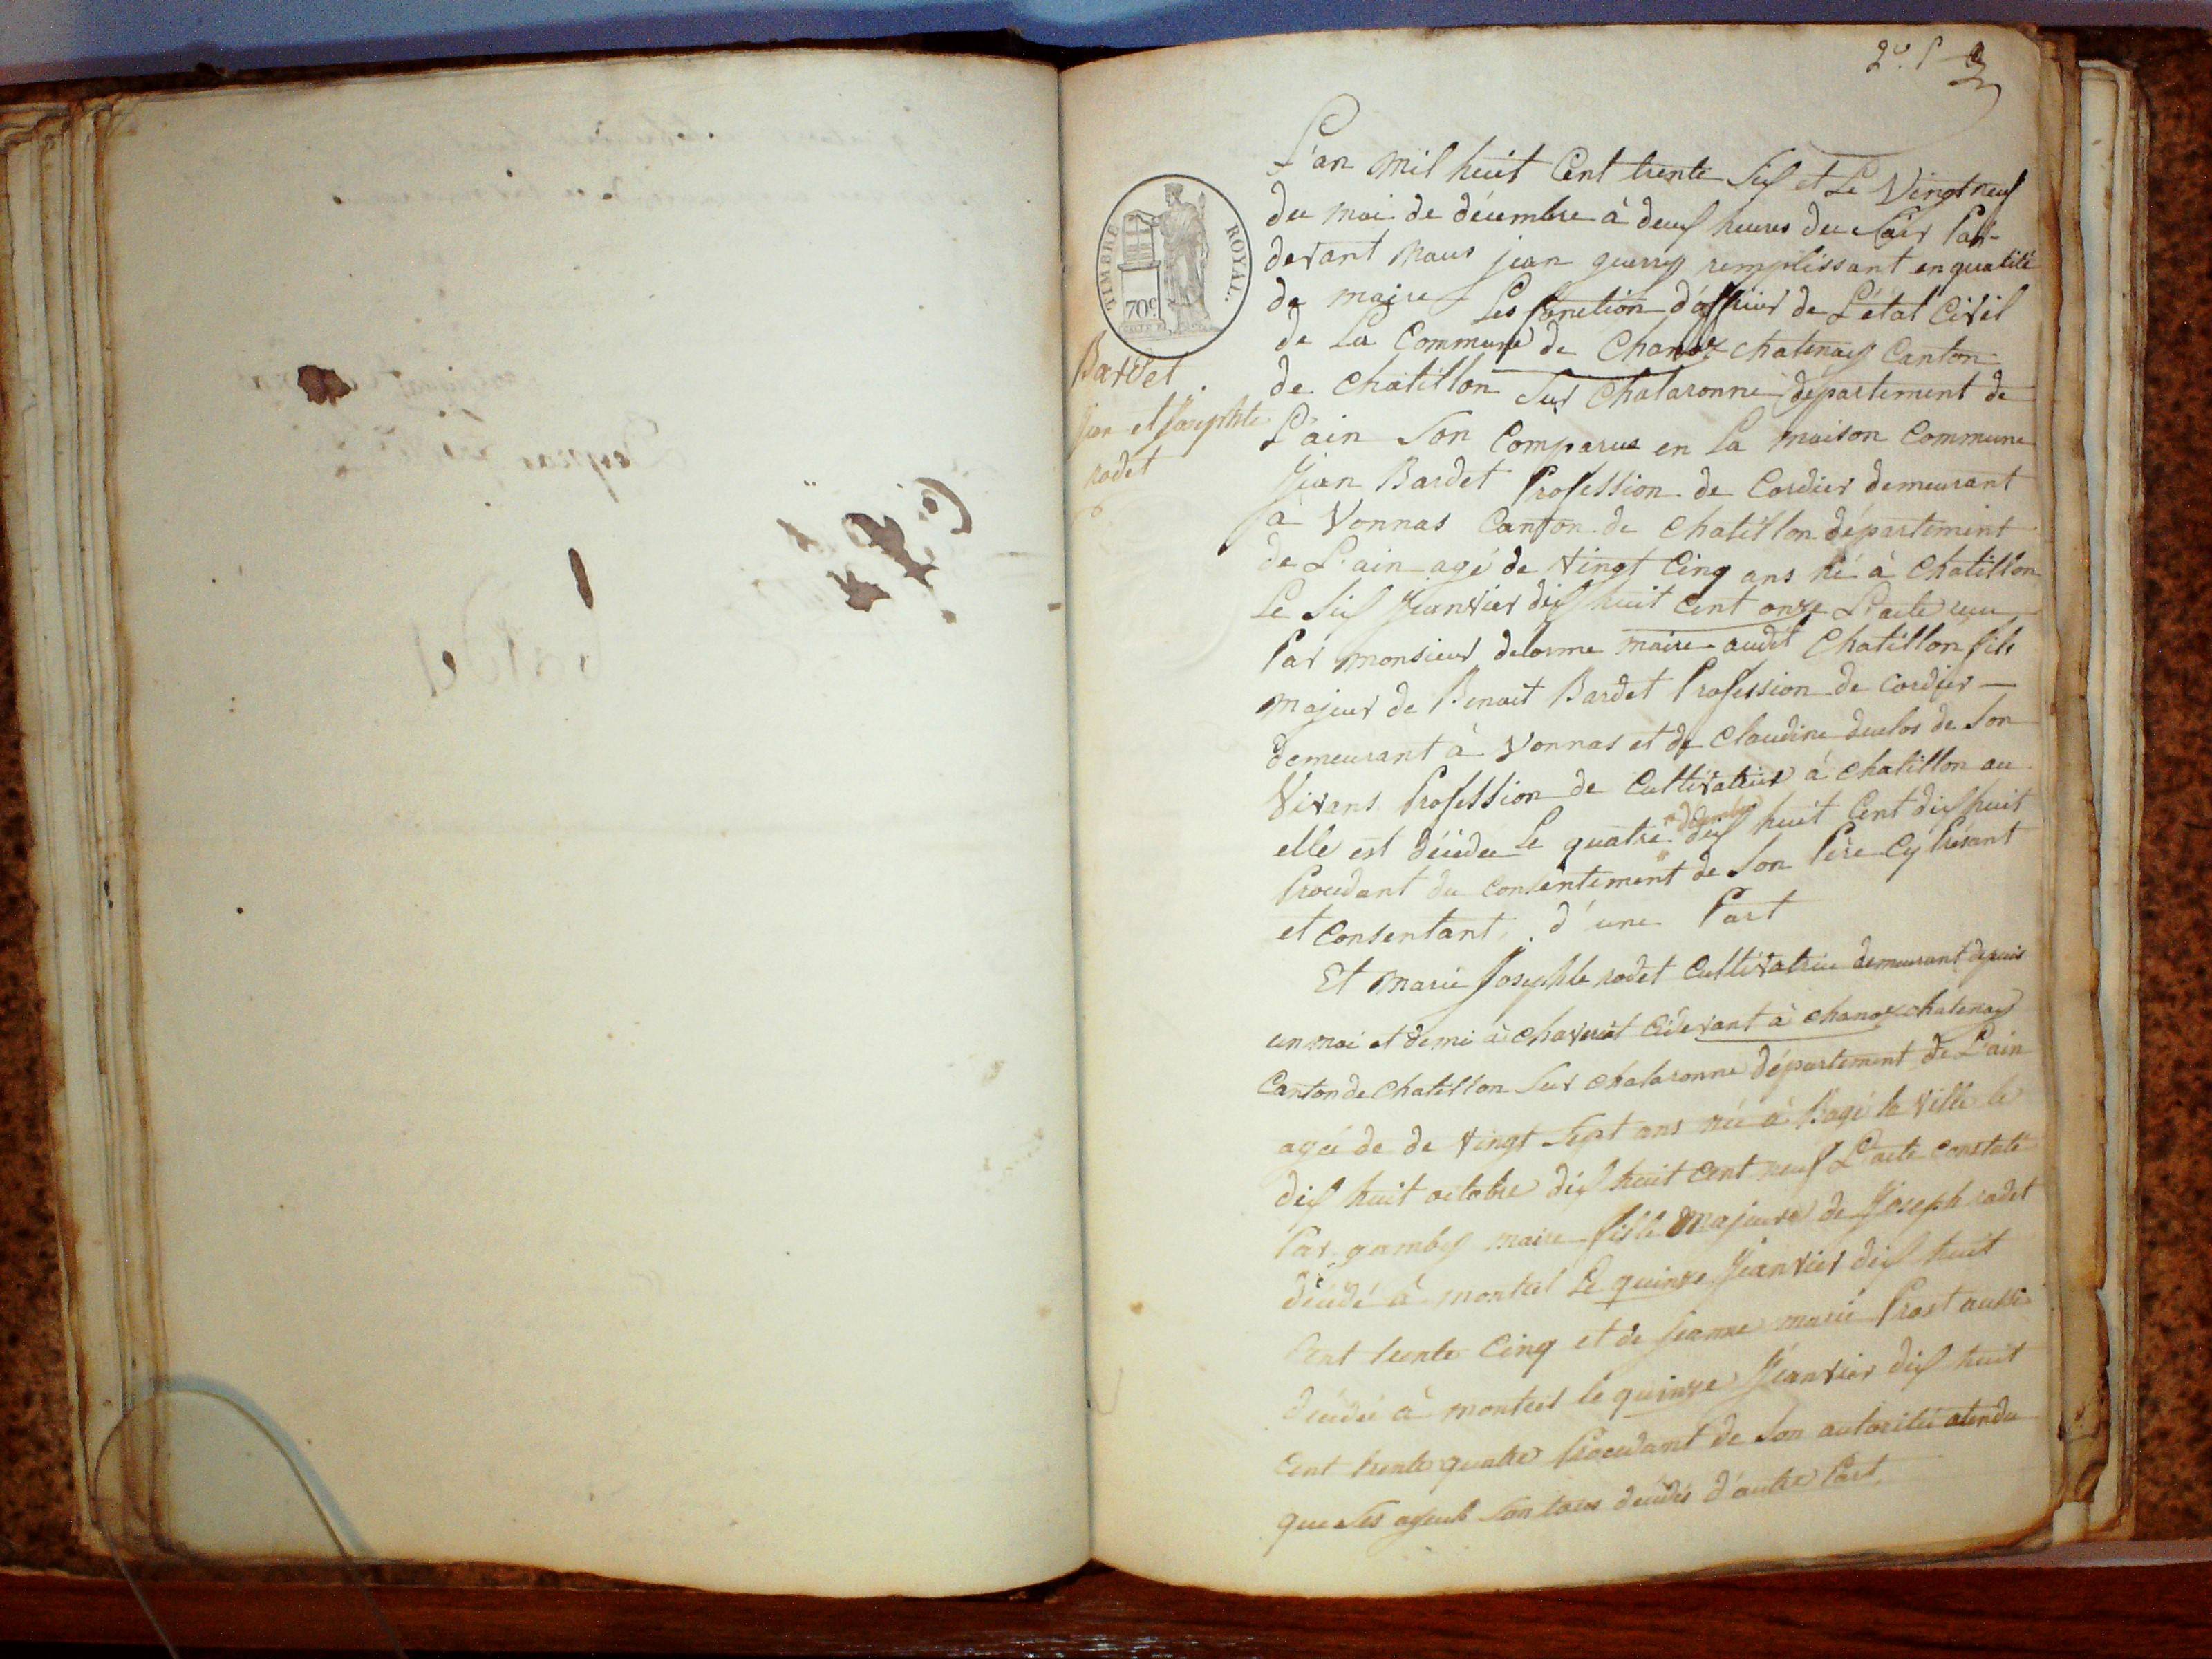 TIMBRE ROYAL.
70c
Bardet
Jean et Josephte
rodet
L'an mil huit Cent trente Six et Le Vingt neuf
du moi de décembre à deux heures du Soir Par-
devant Nous jean guerry remplissant en qualité
de maire Les fonction d'officier de L'état Civil
de La Commune de Chanoz chatenay Canton
de chatillon Sur Chalaronne département de
L'ain Son Comparus en La maison Commune
Jean Bardet Profession de Cordier demeurant
à Vonnas Canton de chatillon département
de L'ain agé de vingt Cinq ans né à Chatillon
Le Six Janvier dix huit Cent onze L'acte reçu
Par monsieur delorme maire audit Chatillon fils
majeur de Benoit Bardet Profession de cordier —
demeurant à Vonnas et de Claudine duclos de Son
Vivans Profession de Cultivatrice à chatillon ou
elle est décédee Le quatre décembre dix huit Cent dix huit
Procedant du Consentement de Son Père Cy Présant
et Consentant d'une Part
Et marie Josephte rodet Cultivatrice demeurant depuis
un moi et demi à chaveriat Cidevant à chanoz chatenay
Canton de Chatillon Sur chalaronne département de L'ain
agée de de vingt Sept ans née à Bagé la ville le
dix huit octobre dix huit Cent neuf L'acte constaté
Par gamby maire fille Majeure de Joseph rodet
décédé à montcel Le quinze Janvier dix huit
Cent trente Cinq et de Jeanne marie Prost aussi
décédée à montcel le quinze Janvier dix huit
Cent trente quatre Procedant de Son autorité atendu
que Ses ayeuls Son tous décédés d'autre Part